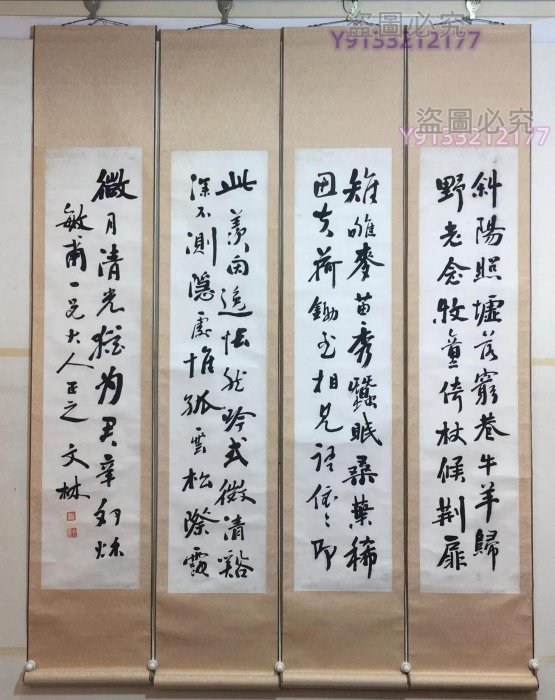 盜圖必究
Y9133212177
盜圖必究
Y9133212177
斜陽照墟落窮巷牛羊歸
野老念牧童倚杖候荊扉
雉雊麥苗秀蠶眠桑葉稀
田夫荷鋤至相見語依〻即
此羨閑逸悵然吟式微清谿
深不測隱處惟孤雲松際露
微月清光猶為君辛卯秋
敏甫一兄大人正之 文林